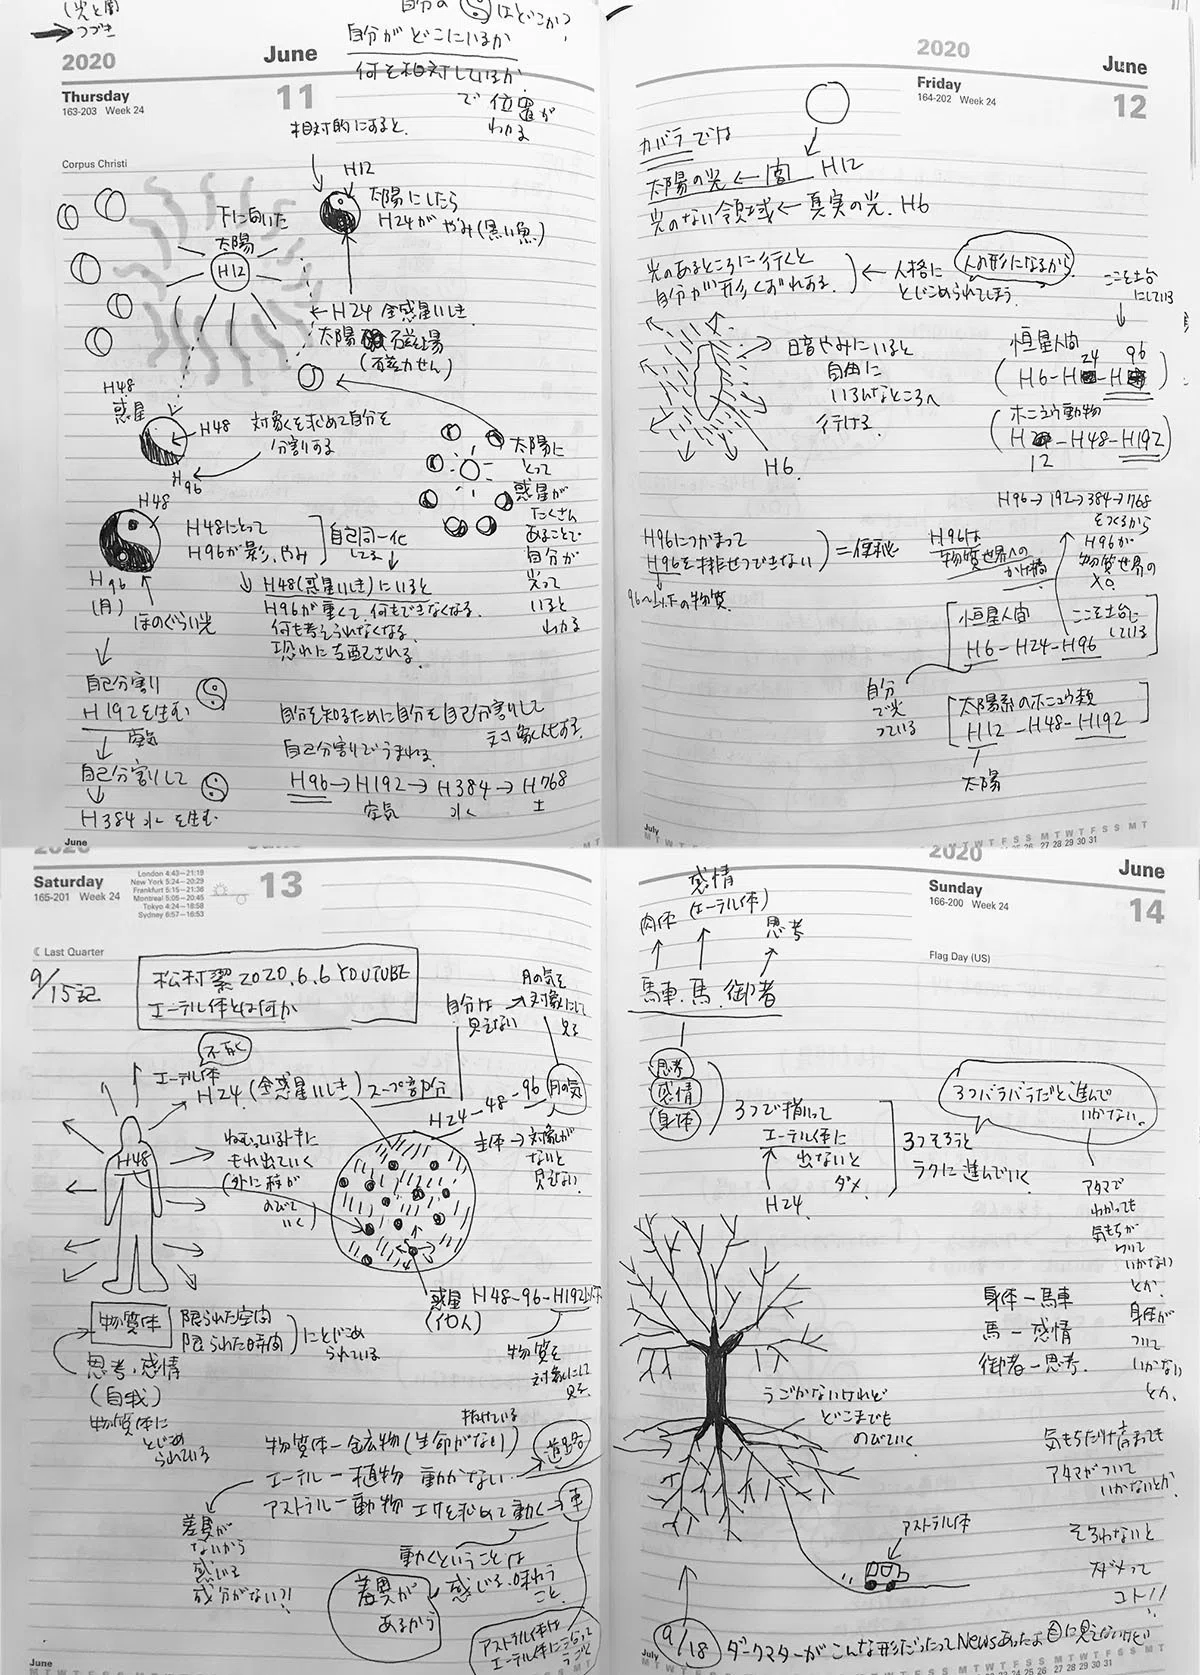 (光と闇
→つづき
自分の はどこか?
自分がどこにいるか
何を相対しているか
で位置が
わかる
2020 June
Thursday 11
163-203 Week 24
Corpus Christi
相対的にすると、
H12
太陽にしたら
H24が やみ(黒い魚)
下に向いた
太陽
H12
←H24 全惑星いしき
太陽 磁場
(磁力せん)
H48
惑星
H48
H96
対象を求めて自分を
分割する
太陽に
とって
惑星が
たくさん
あることで
自分が
光って
いると
わかる
H48
H96
(月)
ほのぐらい光
H48にとって
H96が影、やみ
自己同一化
してる
↓ H48(惑星いしき)にいると
H96が重くて、何もできなくなる。
何も考えられなくなる
恐れに支配される。
自己分割り
H192を生む
空気
自己分割りして
H384 水を生む
自分を知るために自分を自己分割りして
対象化する。
自己分割りでうまれる。
H96→H192→H384→H768
空気 水 土
June
2020 June
Friday 12
164-202 Week 24
カバラでは
太陽の光←闇 H12
光のない領域←真実の光、H6
光のあるところに行くと
自分が形くずれする。
← 人格に
とじこめられてしまう。
人の形になるから
暗やみにいると
自由に
いろんなところへ
行ける
H6
ここを土台
にしている
恒星人間
24 96
(H6-H -H )
ホニュウ動物
(H -H48-H192)
12
H96→192→384→768
をつくるから
H96が
物質世界の
H96につかまって
H96を排せつできない
=便秘
96〜以下の物質
H96は
物質世界への
かけ橋
恒星人間
H6-H24-H96
ここを土台に
している
自分
で光
っている
太陽系のホニュウ類
H12-H48-H192
太陽
July
M T W T F S S M T W T F S S M T
27 28 29 30 31
2020 June
Saturday 13
165-201 Week 24
London 4:43–21:19
New York 5:24–20:29
Frankfurt 5:15–21:36
Montreal 5:05–20:45
Tokyo 4:24–18:58
Sydney 6:57–16:53
Last Quarter
9/15記
松村潔2020.6.6 YOUTUBE
エーテル体とは何か
自分は
見えない
月の気を
対象にして
見る
エーテル体
H24(全惑星いしき)スープ部分
H24-48-96 月の気
主体→対象が
ないと
見えない。
H48
ねむっているトキに
もれ出ていく
(外に
のびて
いく)
惑星 H48-96-H192以下
(他人)
物質を
対象にして
見る
物質体
限られた空間
限られた時間
にとじこめ
られている
思考・感情
(自我)
物質体に
とじこめ
られている
物質体-鉱物(生命がない)
エーテル-植物 動かない 道路
アストラル-動物 エサを求めて動く→車
差異が
ないから
感じる
成分がない?!
動くということは
感じる、味わう
こと
差異が
あるから
アストラル体は
エーテル体に
うごく
June
2020 June
Sunday 14
166-200 Week 24
Flag Day (US)
肉体
感情
(エーテル体)
思考
馬車、馬、御者
思考
感情
身体
3つで揃って
エーテル体に
出ないと
ダメ
H24
3つそろうと
ラクに進んでいく
3つバラバラだと進んで
いかない。
アタマで
わかっても
気もちが
ついて
いかない
とか
身体が
ついて
いかない
とか、
身体-馬車
馬-感情
御者-思考
うごかないけれど
どこまでも
のびていく
気もちだけ高まっても
アタマがついて
いかないとか
そろわないと
ダメって
コト!!
アストラル体
9/18
ダークマターがこんな形だったってNewsあったよ 目に見えないけど
July